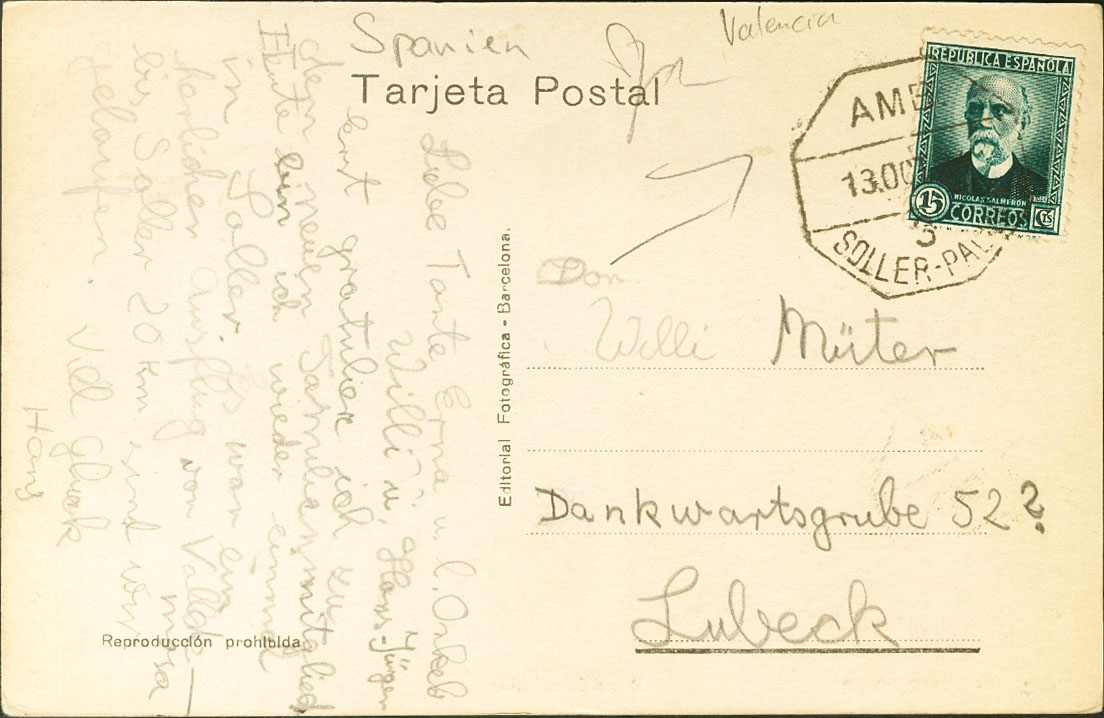 Spanien
Valencia
Tarjeta Postal
REPUBLICA ESPAÑOLA
NICOLAS SALMERON
15 CORREOS Cts
AME
13.OC
SOLLER-PAL
Liebe Tante Erna u. l. Onkel
Willi u. Hans-Jürgen
erst gratuliere ich zu
dem neuen Familienmitglied
Heute bin ich wieder einmal
in Soller. Es war ein
herlicher Ausflug von Valldemosa
bis Soller 20 km sind wir
gelaufen. Viel Glück
Hans
Editorial Fotográfica - Barcelona.
Don
Willi Müter
Dankwartsgrube 52?
Lubeck
Reproducción prohibida